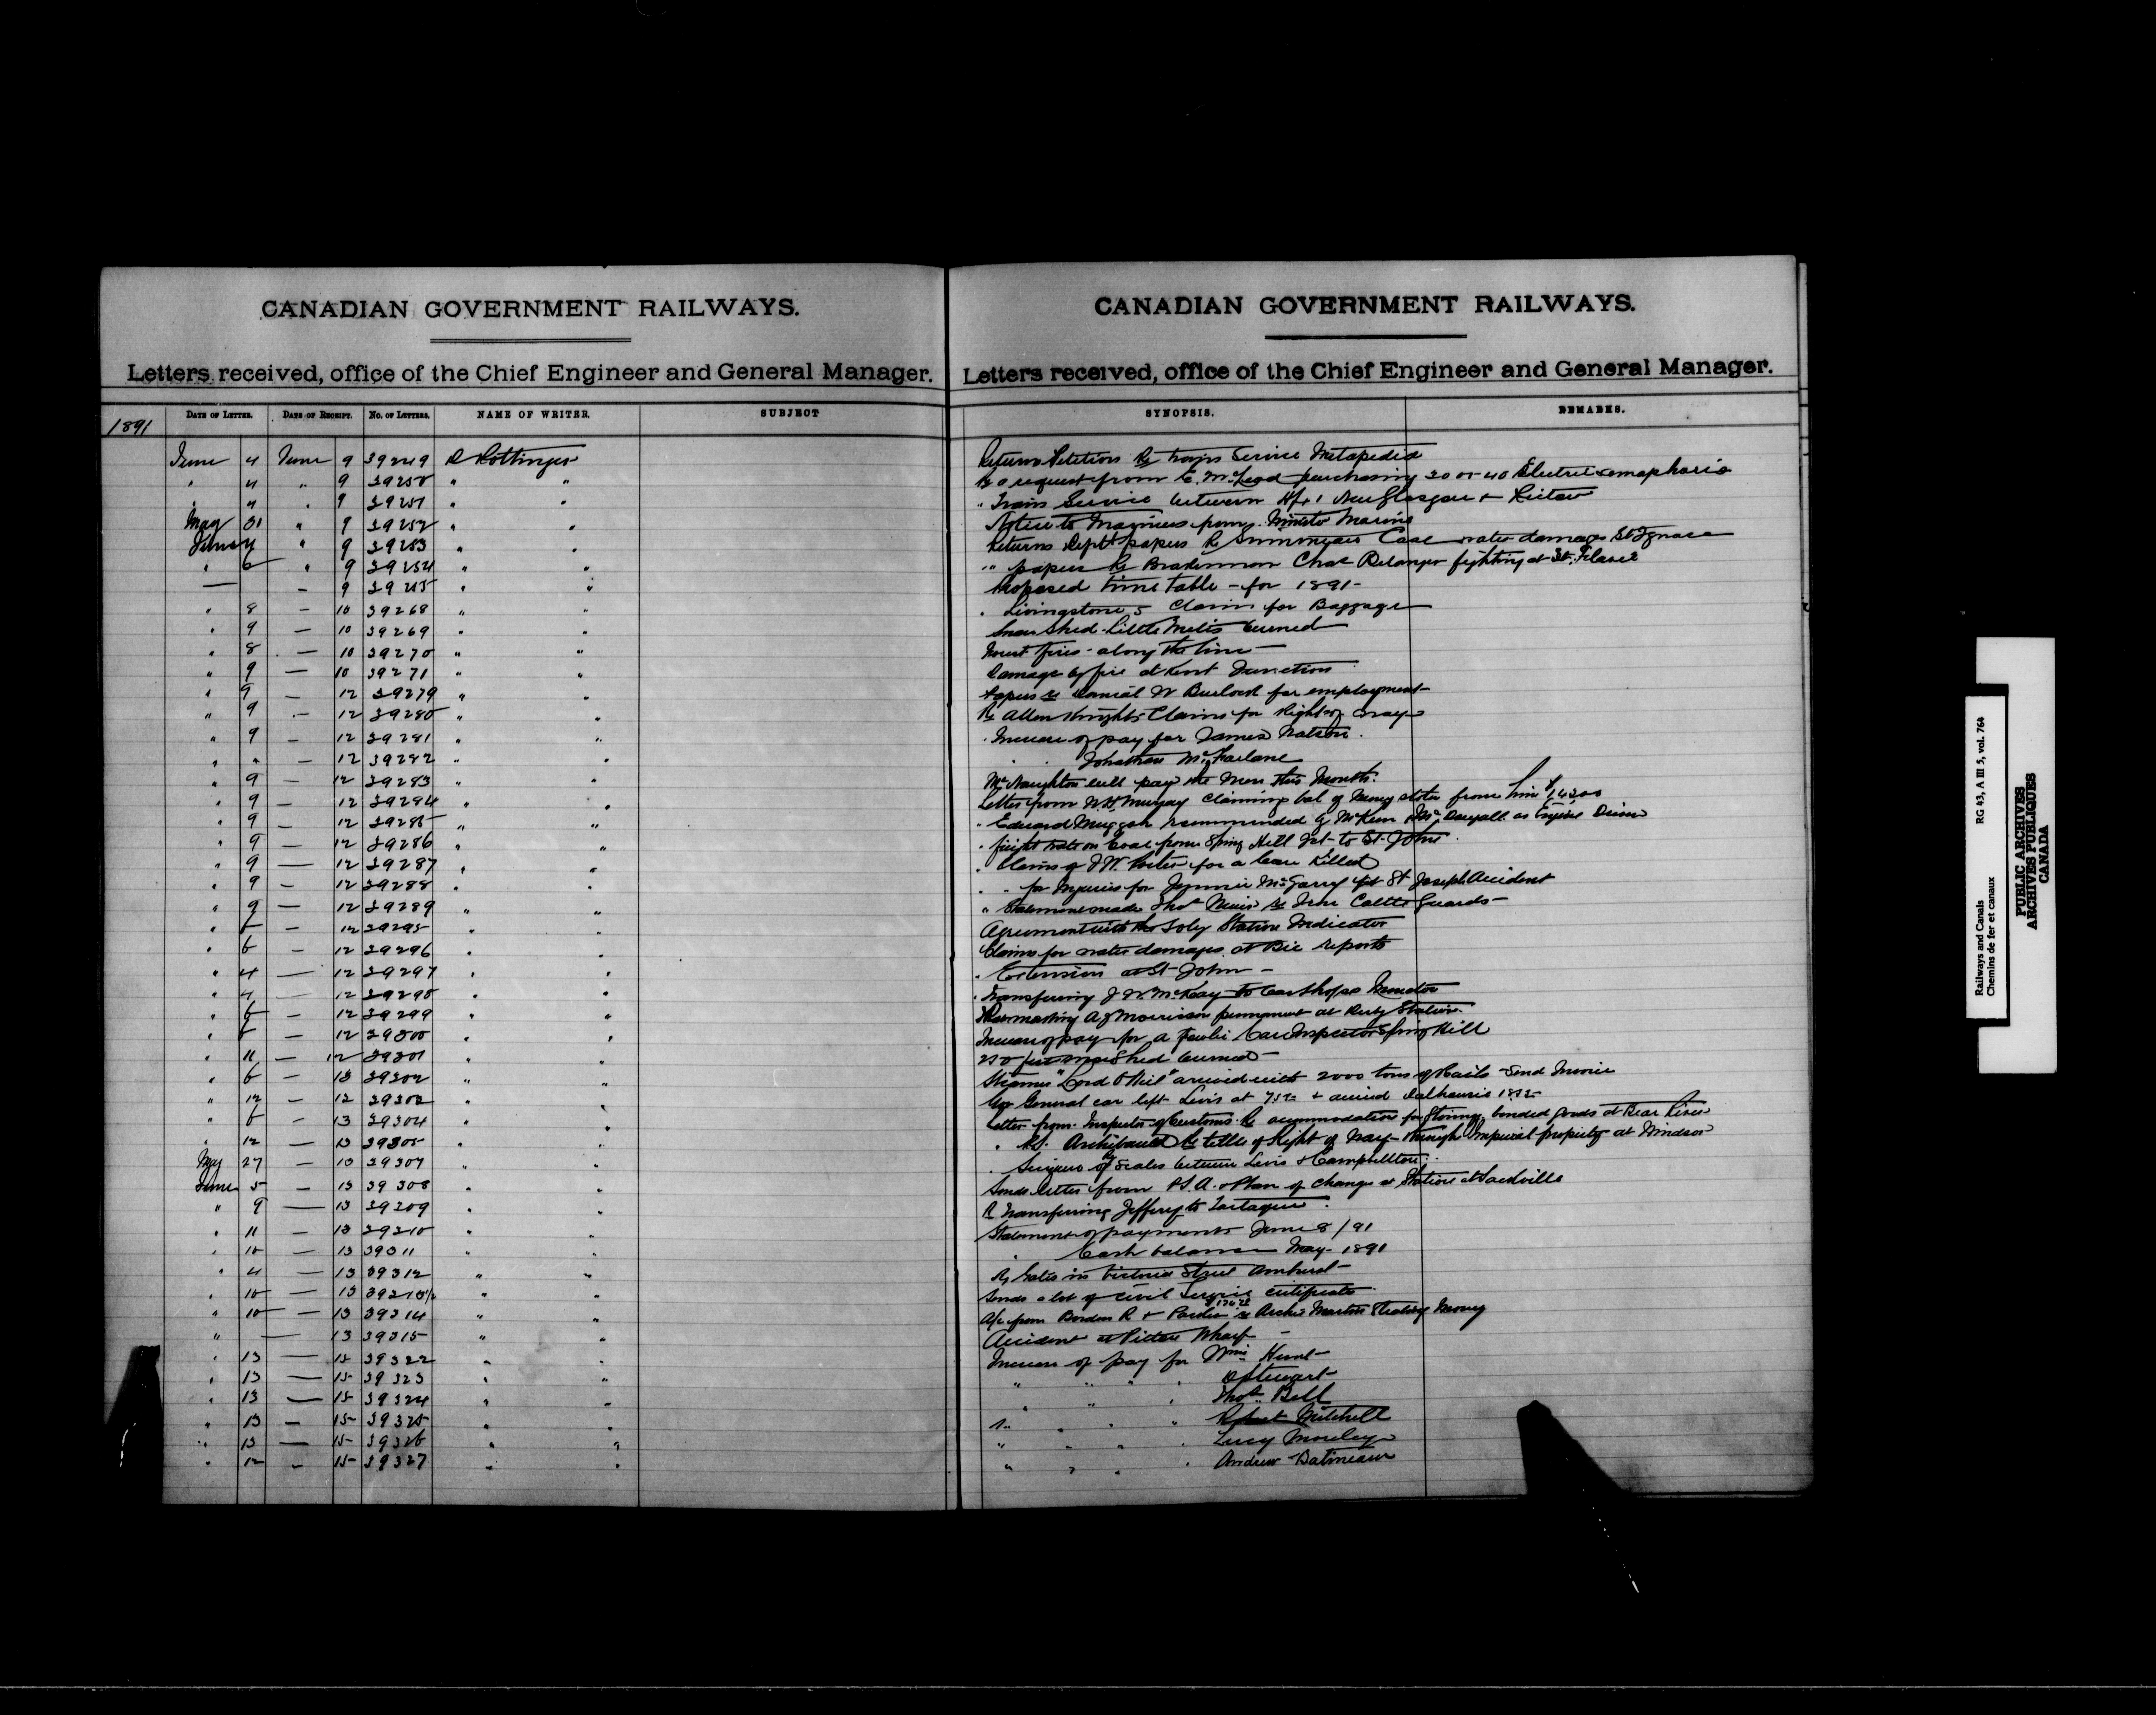 CANADIAN GOVERNMENT RAILWAYS.
Letters received, office of the Chief Engineer and General Manager.
DATE OF LETTER. DATE OF RECEIPT. NO. OF LETTERS. NAME OF WRITER. SUBJECT
1891
June 4 June 9 39249 D Pottinger
" 4 " 9 39250 " "
" 4 " 9 39251 " "
May 31 " 9 39252 " "
June 4 " 9 39253 " "
" 6 " 9 39254 " "
— – 9 39255 " "
" 8 – 10 39268 " "
" 9 — 10 39269 " "
" 8 — 10 39270 " "
" 9 — 10 39271 " "
" 9 – 12 39279 " "
" 9 – 12 39280 " "
" 9 – 12 39281 " "
" " – 12 39282 " "
" 9 – 12 39283 " "
" 9 – 12 39284 " "
" 9 – 12 39285 " "
" 9 – 12 39286 " "
" 9 — 12 39287 " "
" 9 – 12 39288 " "
" 9 — 12 39289 " "
" 6 – 12 39295 " "
" 6 – 12 39296 " "
" 4 — 12 39297 " "
" 4 — 12 39298 " "
" 6 – 12 39299 " "
" 6 – 12 39300 " "
" 11 — 12 39301 " "
" 6 — 13 39302 " "
" 12 – 12 39303 " "
" 6 – 13 39304 " "
" 12 — 13 39305 " "
May 27 – 13 39307 " "
June 5 – 13 39308 " "
" 9 — 13 39309 " "
" 11 – 13 39310 " "
" 10 — 13 39311 " "
" 4 — 13 39312 " "
" 10 — 13 39313½ " "
" 10 — 13 39314 " "
" — 13 39315 " "
" 13 — 15 39322 " "
" 13 — 15 39323 " "
" 13 — 15 39324 " "
" 13 – 15 39325 " "
" 13 — 15 39326 " "
" 12 – 15 39327 " "
CANADIAN GOVERNMENT RAILWAYS.
Letters received, office of the Chief Engineer and General Manager.
SYNOPSIS. REMARKS.
Returns Petition Re train Service Metapedia
Re a request from E. McLeod purchasing 30 or 40 Electric semaphores
" Train Service between Hfx, New Glasgow & Pictou
Notice to Mariners from Minister Marine
Returns Dept papers Re Case water damages St Ignace
" papers Re Brakesman Chas Belanger fighting at St. Flavie
Proposed time table – for 1891 –
" Livingstone's Claim for Baggage
Snow Shed Little Metis burned
Forest fires – along the line –
Damage by fire at Kent Junction
Papers re Daniel W for employment
Re Allen Knights Claim for Right of way
" Increase of pay for James Watson.
" " Jonathan McFarlane
McNaughton will pay the Men this Month.
Letter from W.H. Murray claiming bal of Money stolen from him
" Edward Muggah recommended by McKeen & as Engine Driver
" freight rate on Coal from Spring Hill Jct to St. John
" Claim of J W Porter for a Cow Killed
" " for Injuries for Jennie McGarry St Joseph Accident
" Statement made Thos Muir re Iron Cattle Guards –
Agreement with the Station Indicator
Claims for water damages at Bic reports
" Extension at St John –
" Transferring J W McKay to Moncton
A J Morrison permanent at Station.
Increase of pay for a Car Inspector Spring Hill
250 feet Snow Shed burned –
Steamer "Lord O'Neil" arrived with 2000 tons of Rails – Send Invoice
Gov General car left Levis at & arrived Dalhousie
Letter from Inspector of Customs Re accommodation for storing bonded goods at Bear River
" Archibald Re title of Right of Way through Imperial property at Windsor
" of Scales between Levis & Campbellton.
Sends letter from & Plan of change at Station at Sackville
Re Transferring Jeffery to Tartague.
Statement of payments June 8/91
" Cash balance May 1891
Re Gates in Victoria Street Amherst –
Sends a lot of Civil Service certificates
A/c from Borden R & Parker re Archie Martin Stealing Money
Accident at Pictou Wharf –
Increase of pay for Wm Hunt –
" " " " D Stewart –
" " " Thos Bell
" " " " Robert Mitchell
" " " " Lucy Moseley
" " " " Andrew
Railways and Canals RG 43, A III 5, vol. 764
Chemins de fer et canaux
PUBLIC ARCHIVES
ARCHIVES PUBLIQUES
CANADA